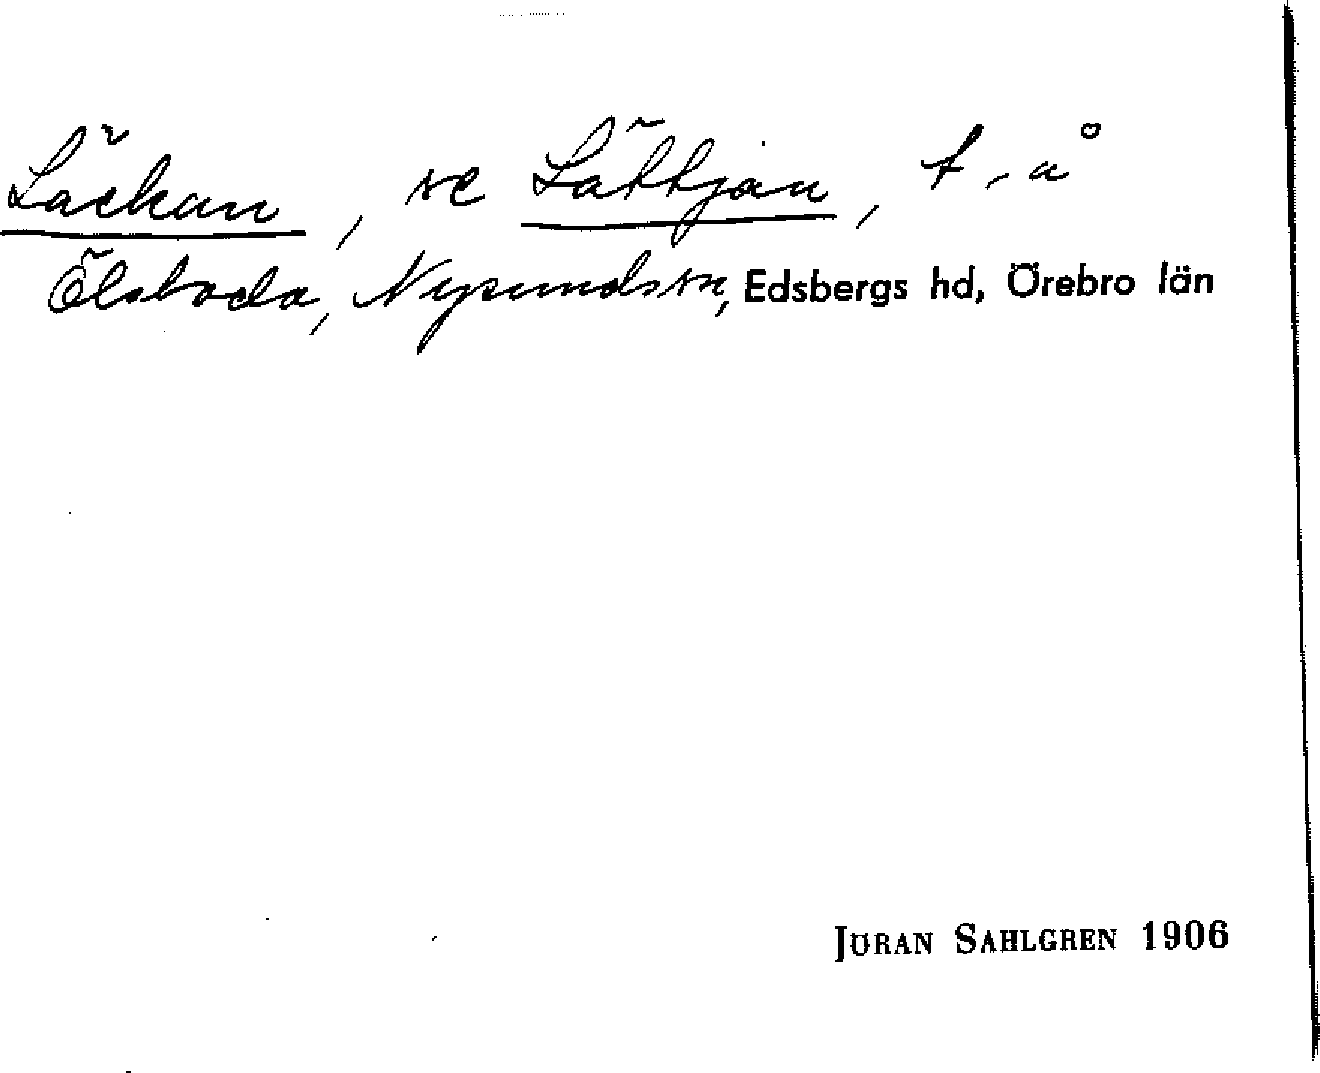 Läckan, se Lättjan, t, å
Ölsboda, Nysunds sn, Edsbergs hd, Örebro län
JÖRAN SAHLGREN 1906